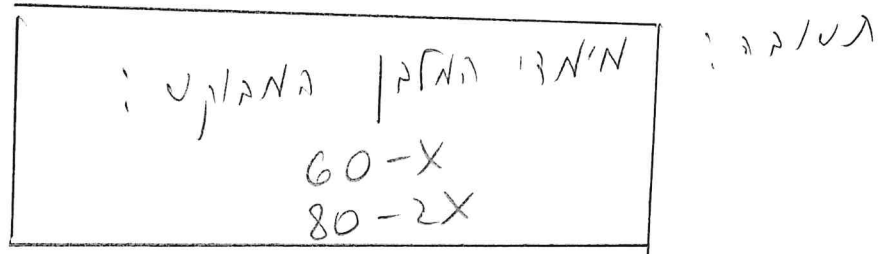 תשובה:
מימדי המלבן המבוקש:
60-X
80-2X